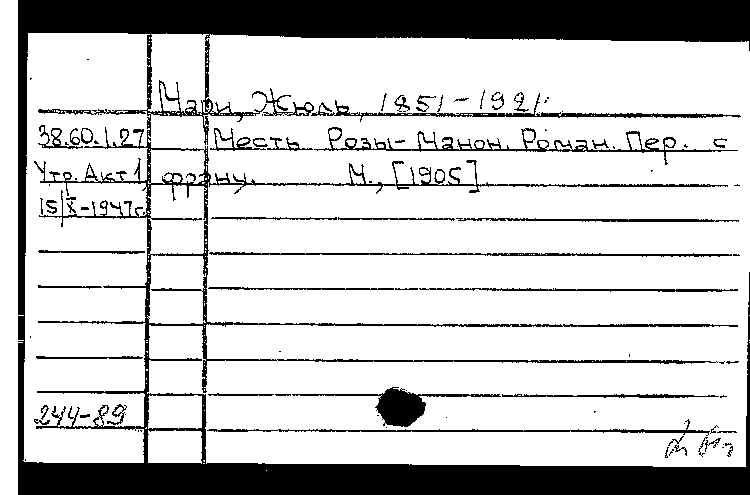 Мари, Жюль, 1851-1921.
38.60.1.27 Месть Розы-Манон. Роман. Пер. с
Утр. Акт 1, франц. М., [1905]
15/X-1947г.
244-89